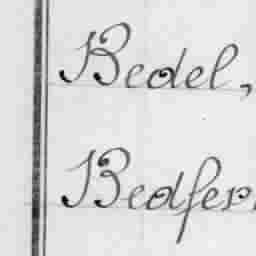 Bedel,
Bedfer